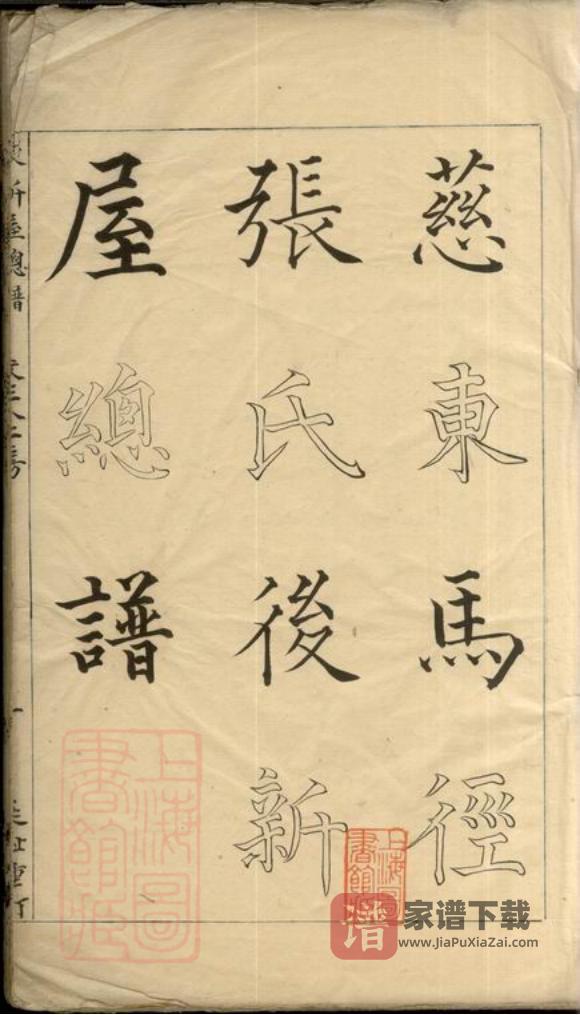 慈東馬徑
張氏後新
屋總譜
新屋總譜
上海圖
書館藏
上海圖
書館藏
譜
家谱下载
www.JiaPuXiaZai.com